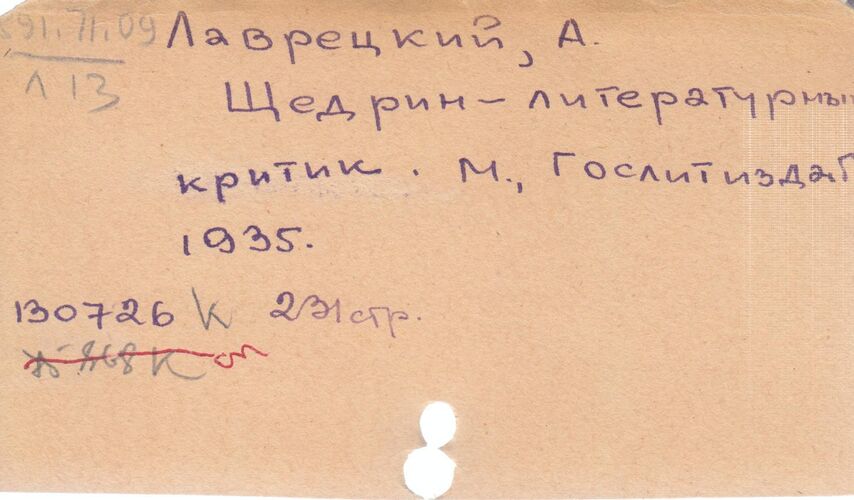 891.71.09 Лаврецкий, А.
Л 13
Щедрин - литературный
критик. М., Гослитиздат
1935.
130726 К 231 стр.